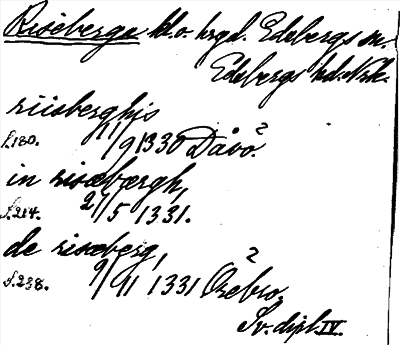 Riseberga kl. o. hrgd. Edebergs sn.
Edebergs hd. Nrk.
riisberghis
s. 180. 11/9 1330 Dåvö.²
in risæbærgh,
s. 214. 2/5 1331.
de risæberg,
s. 238. 9/11 1331 Örebro.²
Sv. dipl. IV.